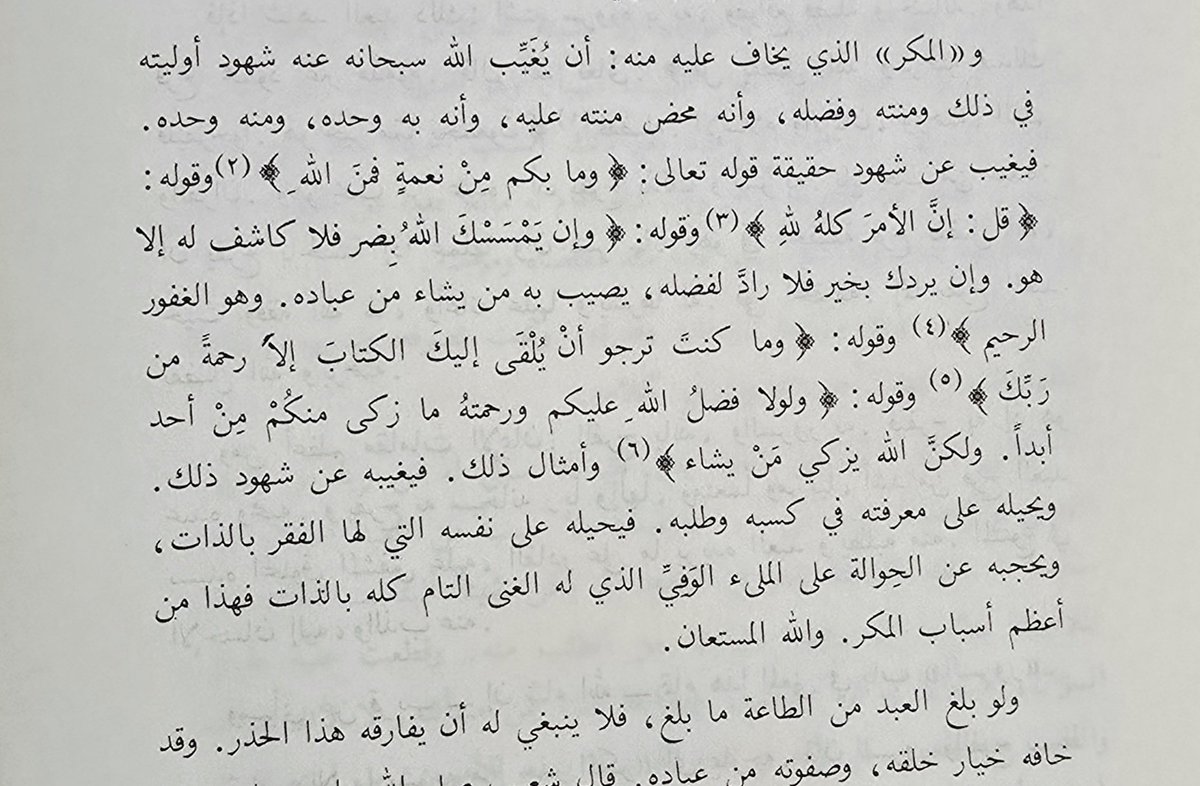 و«المكر» الذي يخاف عليه منه: أن يُغَيِّب الله سبحانه عنه شهود أوليته
في ذلك ومنته وفضله، وأنه محض منته عليه، وأنه به وحده، ومنه وحده.
فيغيب عن شهود حقيقة قوله تعالى: ﴿وما بكم مِنْ نعمةٍ فمنَ اللهِ﴾(٢) وقوله:
﴿قل: إنَّ الأمرَ كلهُ للهِ﴾(٣) وقوله: ﴿وإن يَمْسَسْكَ اللهُ بِضر فلا كاشف له إلا
هو. وإن يردك بخير فلا رادَّ لفضله، يصيب به من يشاء من عباده. وهو الغفور
الرحيم﴾(٤) وقوله: ﴿وما كنتَ ترجو أنْ يُلْقَى إليكَ الكتابَ إلاَّ رحمةً من
رَبِّكَ﴾(٥) وقوله: ﴿ولولا فضلُ اللهِ عليكم ورحمتهُ ما زكى منكُمْ مِنْ أحد
أبداً. ولكنَّ الله يزكي مَنْ يشاء﴾(٦) وأمثال ذلك. فيغيبه عن شهود ذلك.
ويحيله على معرفته في كسبه وطلبه. فيحيله على نفسه التي لها الفقر بالذات،
ويحجبه عن الحِوالة على المليء الوَفِيِّ الذي له الغنى التام كله بالذات فهذا من
أعظم أسباب المكر. والله المستعان.
ولو بلغ العبد من الطاعة ما بلغ، فلا ينبغي له أن يفارقه هذا الحذر. وقد
خافه خيار خلقه، وصفوته من عباده. قال